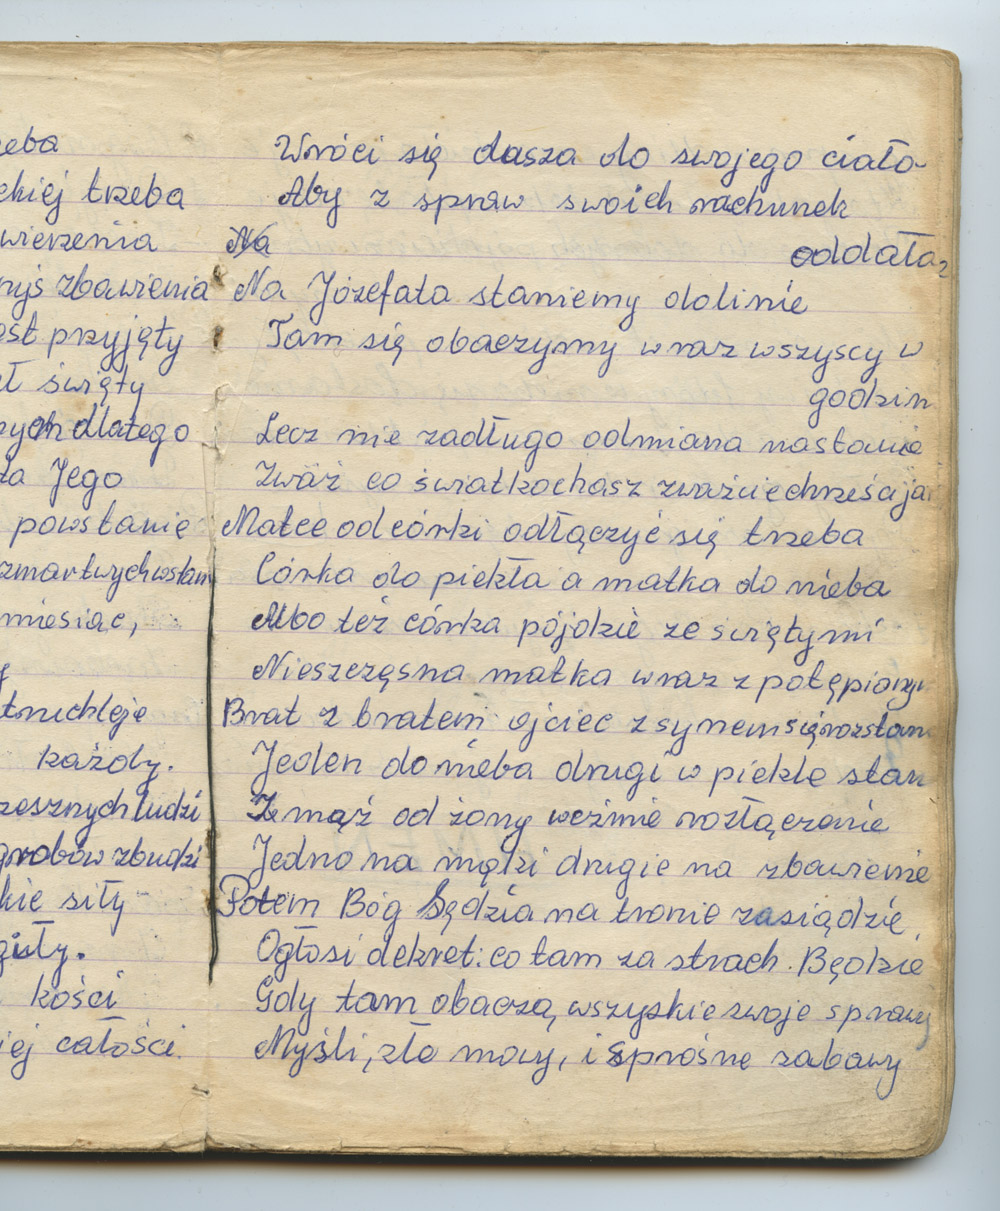 eba
ekiej trzeba
wierzenia
nyś zbawienia
ost przyjęty
ł święty
ych dlatego
ła Jego
powstanie
zmartwychwstan
miesiąc,
y
truchleje
każdy.
rzesznych ludzi
grobów zbudzi
kie siły
gisły.
kości
iej całości.
Wróci się dusza do swojego ciało-
Aby z spraw swoich rachunek
Na oddała,
Na Józefata staniemy dolinie
Tam się obaczymy wraz wszyscy w
godzin
Lecz nie zadługo odmiana nastanie
Zważ co światkochasz zważcie chrześcija
Matce od córki odłączyć się trzeba
Córka do piekła a matka do nieba
Albo też córka pójdzie ze świętymi
Nieszczęsna matka wraz z potępiony
Brat z bratem ojciec z synem się rozstan
Jeden do nieba drugi w piekle stan
Ze mąż od żony weźmie rozłączenie
Jedno na męki drugie na zbawienie
Potem Bóg Sędzia na tronie zasiądzie,
Ogłosi dekret: co tam za strach. Będzie
Gdy tam obaczą, wszyskie swoje sprawy
Myśli, złe mowy, i sprośne zabawy